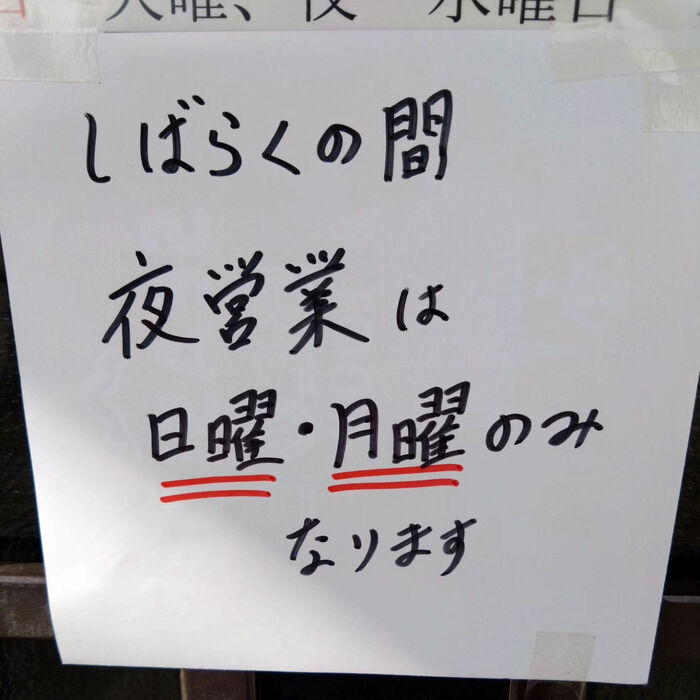 火曜、夜 水曜日
しばらくの間
夜営業は
日曜・月曜のみ
なります